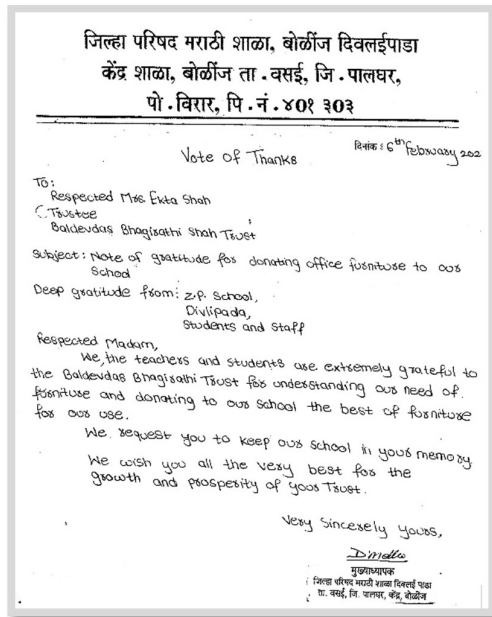 जिल्हा परिषद मराठी शाळा, बोळींज दिवलईपाडा
केंद्र शाळा, बोळींज ता.वसई, जि.पालघर,
पो.विरार, पि.नं.४०१ ३०३
दिनांक : 6th February 202
Vote of Thanks
To:
Respected Mrs Ekta Shah
(Trustee
Baldevdas Bhagirathi Shah Trust
Subject: Note of gratitude for donating office furniture to our
School
Deep gratitude from: Z.P. School,
Divlipada,
Students and Staff
Respected Madam,
We, the teachers and students are extremely grateful to
the Baldevdas Bhagirathi Trust for understanding our need of
furniture and donating to our school the best of furniture
for our use.
We request you to keep our school in your memory
We wish you all the very best for the
growth and prosperity of your Trust.
Very Sincerely Yours,
मुख्याध्यापक
जिल्हा परिषद मराठी शाळा दिवलई पाडा
ता. वसई, जि. पालघर, केंद्र, बोळींज